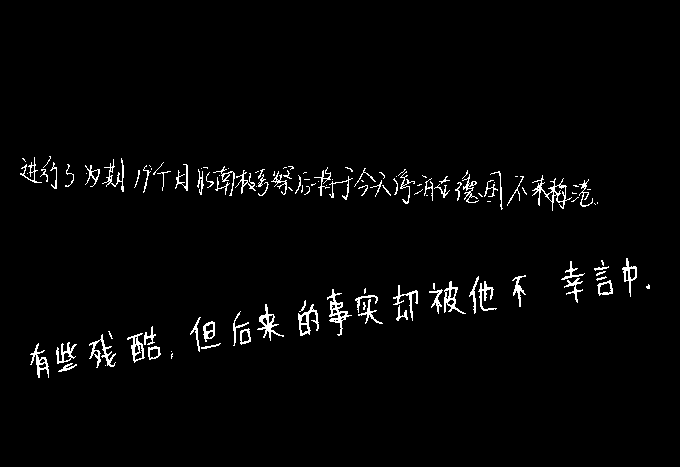 进行了为期19个月的南极考察后将于今天停泊在德国不来梅港.
有些残酷,但后来的事实却被他不幸言中.